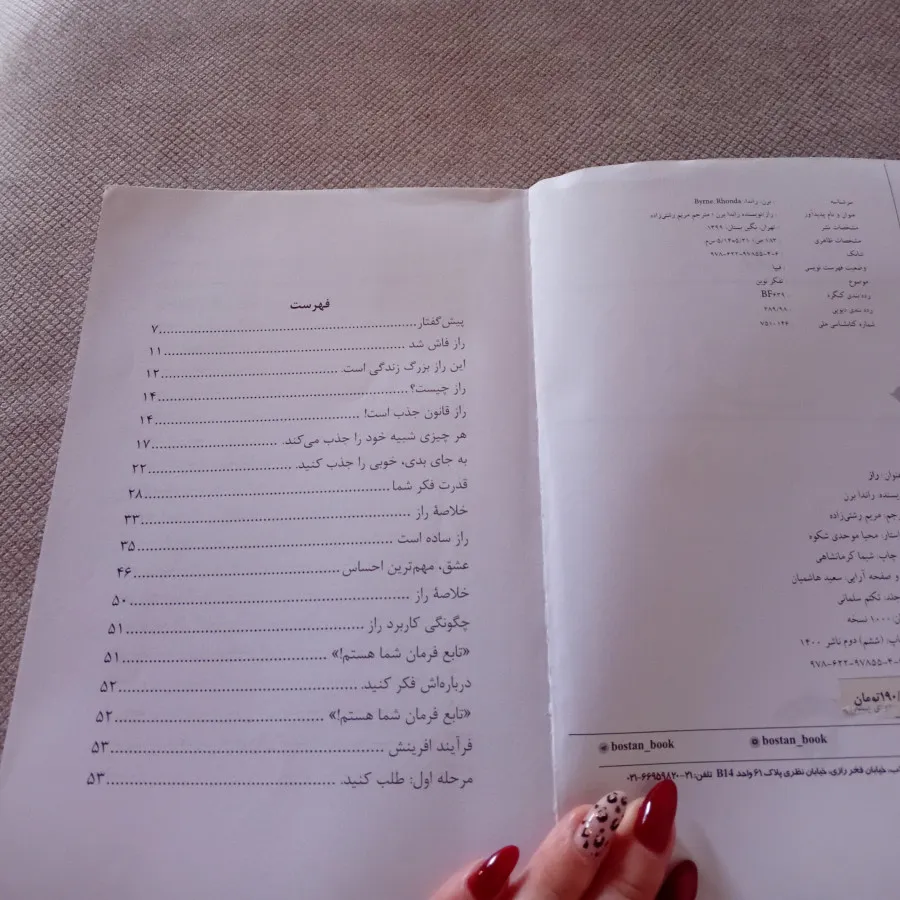 سرشناسه : برن، راندا، Byrne, Rhonda
عنوان و نام پدیدآور : راز/نویسنده راندا برن ؛ مترجم مریم رشتی‌زاده
مشخصات نشر : تهران، نگین بستان، ۱۳۹۹
مشخصات ظاهری : ۱۸۳ص؛ ۱۴/۵×۲۱/۵ س‌م.
شابک
وضعیت فهرست نویسی : فیپا
موضوع : تفکر نوین
رده بندی کنگره
رده بندی دیویی
شماره کتابشناسی ملی
عنوان: راز
راندا برن
مریم رشتی‌زاده
محیا موحدی شکوه
چاپ: شیما کرمانشاهی
و صفحه آرایی: سعید هاشمیان
تکتم سلمانی
۱۰۰۰ نسخه
(ششم) دوم ناشر ۱۴۰۰
تومان
bostan_book bostan_book
خیابان فخر رازی، خیابان نظری پلاک ۶۱ واحد B14 تلفن: ۰۲۱-۶۶۹۵۹۸۲۰-۲۱
فهرست
پیش‌گفتار ........ ۷
راز فاش شد ........ ۱۱
این راز بزرگ زندگی است. ........ ۱۲
راز چیست؟ ........ ۱۴
راز قانون جذب است! ........ ۱۴
هر چیزی شبیه خود را جذب می‌کند. ........ ۱۷
به جای بدی، خوبی را جذب کنید. ........ ۲۲
قدرت فکر شما ........ ۲۸
خلاصهٔ راز ........ ۳۳
راز ساده است ........ ۳۵
عشق، مهم‌ترین احساس ........ ۴۶
خلاصهٔ راز ........ ۵۰
چگونگی کاربرد راز ........ ۵۱
«تابع فرمان شما هستم!» ........ ۵۱
درباره‌اش فکر کنید. ........ ۵۲
«تابع فرمان شما هستم!» ........ ۵۲
فرآیند افرینش ........ ۵۳
مرحله اول: طلب کنید. ........ ۵۳